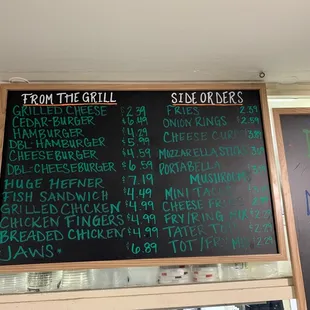 FROM THE GRILL
GRILLED CHEESE $2.39
CEDAR-BURGER $6.49
HAMBURGER $4.29
DBL-HAMBURGER $5.99
CHEESEBURGER $4.59
DBL-CHEESEBURGER $6.59
HUGE HEFNER $7.19
FISH SANDWICH $4.49
GRILLED CHICKEN $4.99
CHICKEN FINGERS $4.99
BREADED CHICKEN $4.99
JAWS $6.89
SIDE ORDERS
FRIES 2.59
ONION RINGS $2.59
CHEESE
MOZZARELLA STICKS
PORTABELLA
MUSHROOM
MINI TACO
CHEESE
FRY/RING
TATER
TOT/